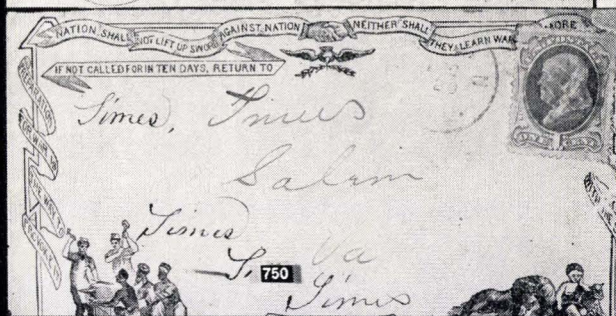 NATION SHALL NOT LIFT UP SWORD AGAINST NATION NEITHER SHALL THEY LEARN WAR MORE
IF NOT CALLED FOR IN TEN DAYS, RETURN TO
PREPARATION FOR WAR IS
Times, Times
Salem
Times
Va
750
Times